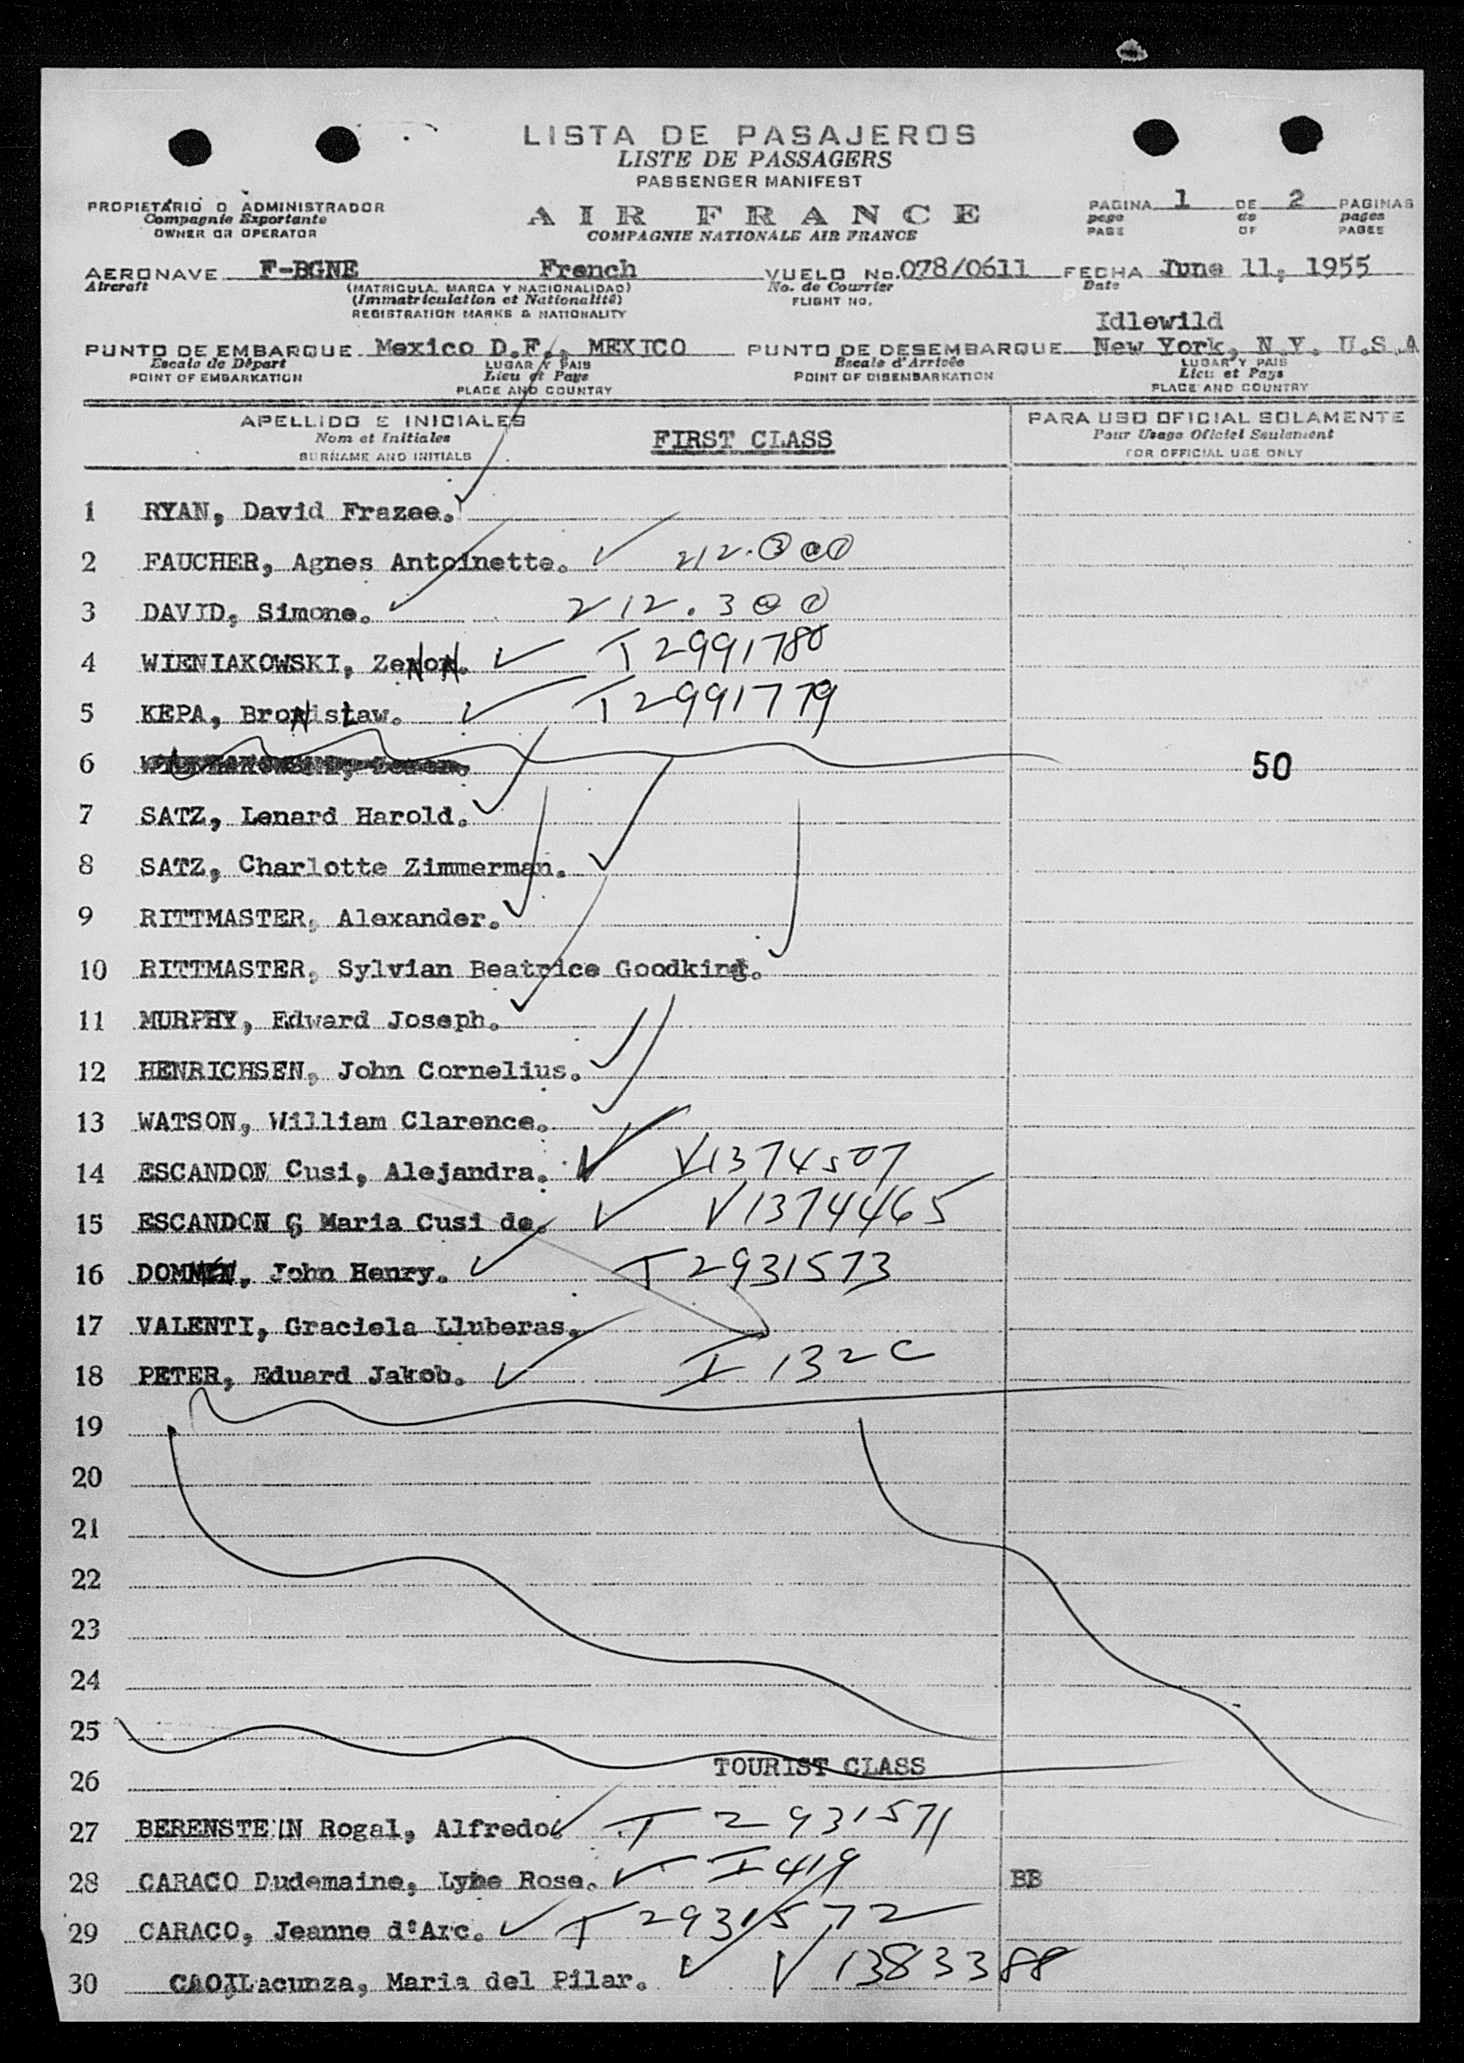 LISTA DE PASAJEROS
LISTE DE PASSAGERS
PASSENGER MANIFEST
PROPIETARIO O ADMINISTRADOR
Compagnie Exportante
OWNER OR OPERATOR
AIR FRANCE
COMPAGNIE NATIONALE AIR FRANCE
PAGINA 1 DE 2 PAGINAS
page de pages
PAGE OF PAGES
AERONAVE F-BGNE French VUELO No. 078/0611 FECHA June 11, 1955
Aircraft (MATRICULA, MARCA Y NACIONALIDAD) No. de Courrier Date
(Immatriculation et Nationalité) FLIGHT NO.
REGISTRATION MARKS & NATIONALITY
Idlewild
PUNTO DE EMBARQUE Mexico D.F., MEXICO PUNTO DE DESEMBARQUE New York, N.Y. U.S.A
Escale de Départ LUGAR Y PAIS Escale d'Arrivée LUGAR Y PAIS
POINT OF EMBARKATION Lieu et Pays POINT OF DISEMBARKATION Lieu et Pays
PLACE AND COUNTRY PLACE AND COUNTRY
APELLIDO E INICIALES PARA USO OFICIAL SOLAMENTE
Nom et Initiales FIRST CLASS Pour Usage Officiel Seulement
SURNAME AND INITIALS FOR OFFICIAL USE ONLY
1 RYAN, David Frazee.
2 FAUCHER, Agnes Antoinette. 212.3
3 DAVID, Simone. 212.3
4 WIENIAKOWSKI, ZeNoN. T 2991780
5 KEPA, BroNisław. T 2991779
6 50
7 SATZ, Lenard Harold.
8 SATZ, Charlotte Zimmerman.
9 RITTMASTER, Alexander.
10 RITTMASTER, Sylvian Beatrice Goodkind.
11 MURPHY, Edward Joseph.
12 HENRICHSEN, John Cornelius.
13 WATSON, William Clarence.
14 ESCANDON Cusi, Alejandra. V1374507
15 ESCANDON G Maria Cusi de. V1374465
16 John Henry. T 2931573
17 VALENTI, Graciela Lluberas.
18 PETER, Eduard Jakob. I 132C
19
20
21
22
23
24
25
TOURIST CLASS
26
27 BERENSTEIN Rogal, Alfredo. T 2931571
28 CARACO Dudemaine, Rose. I 419 BB
29 CARACO, Jeanne d'Arc. T 2931572
30 Lacunza, Maria del Pilar. V 1383388